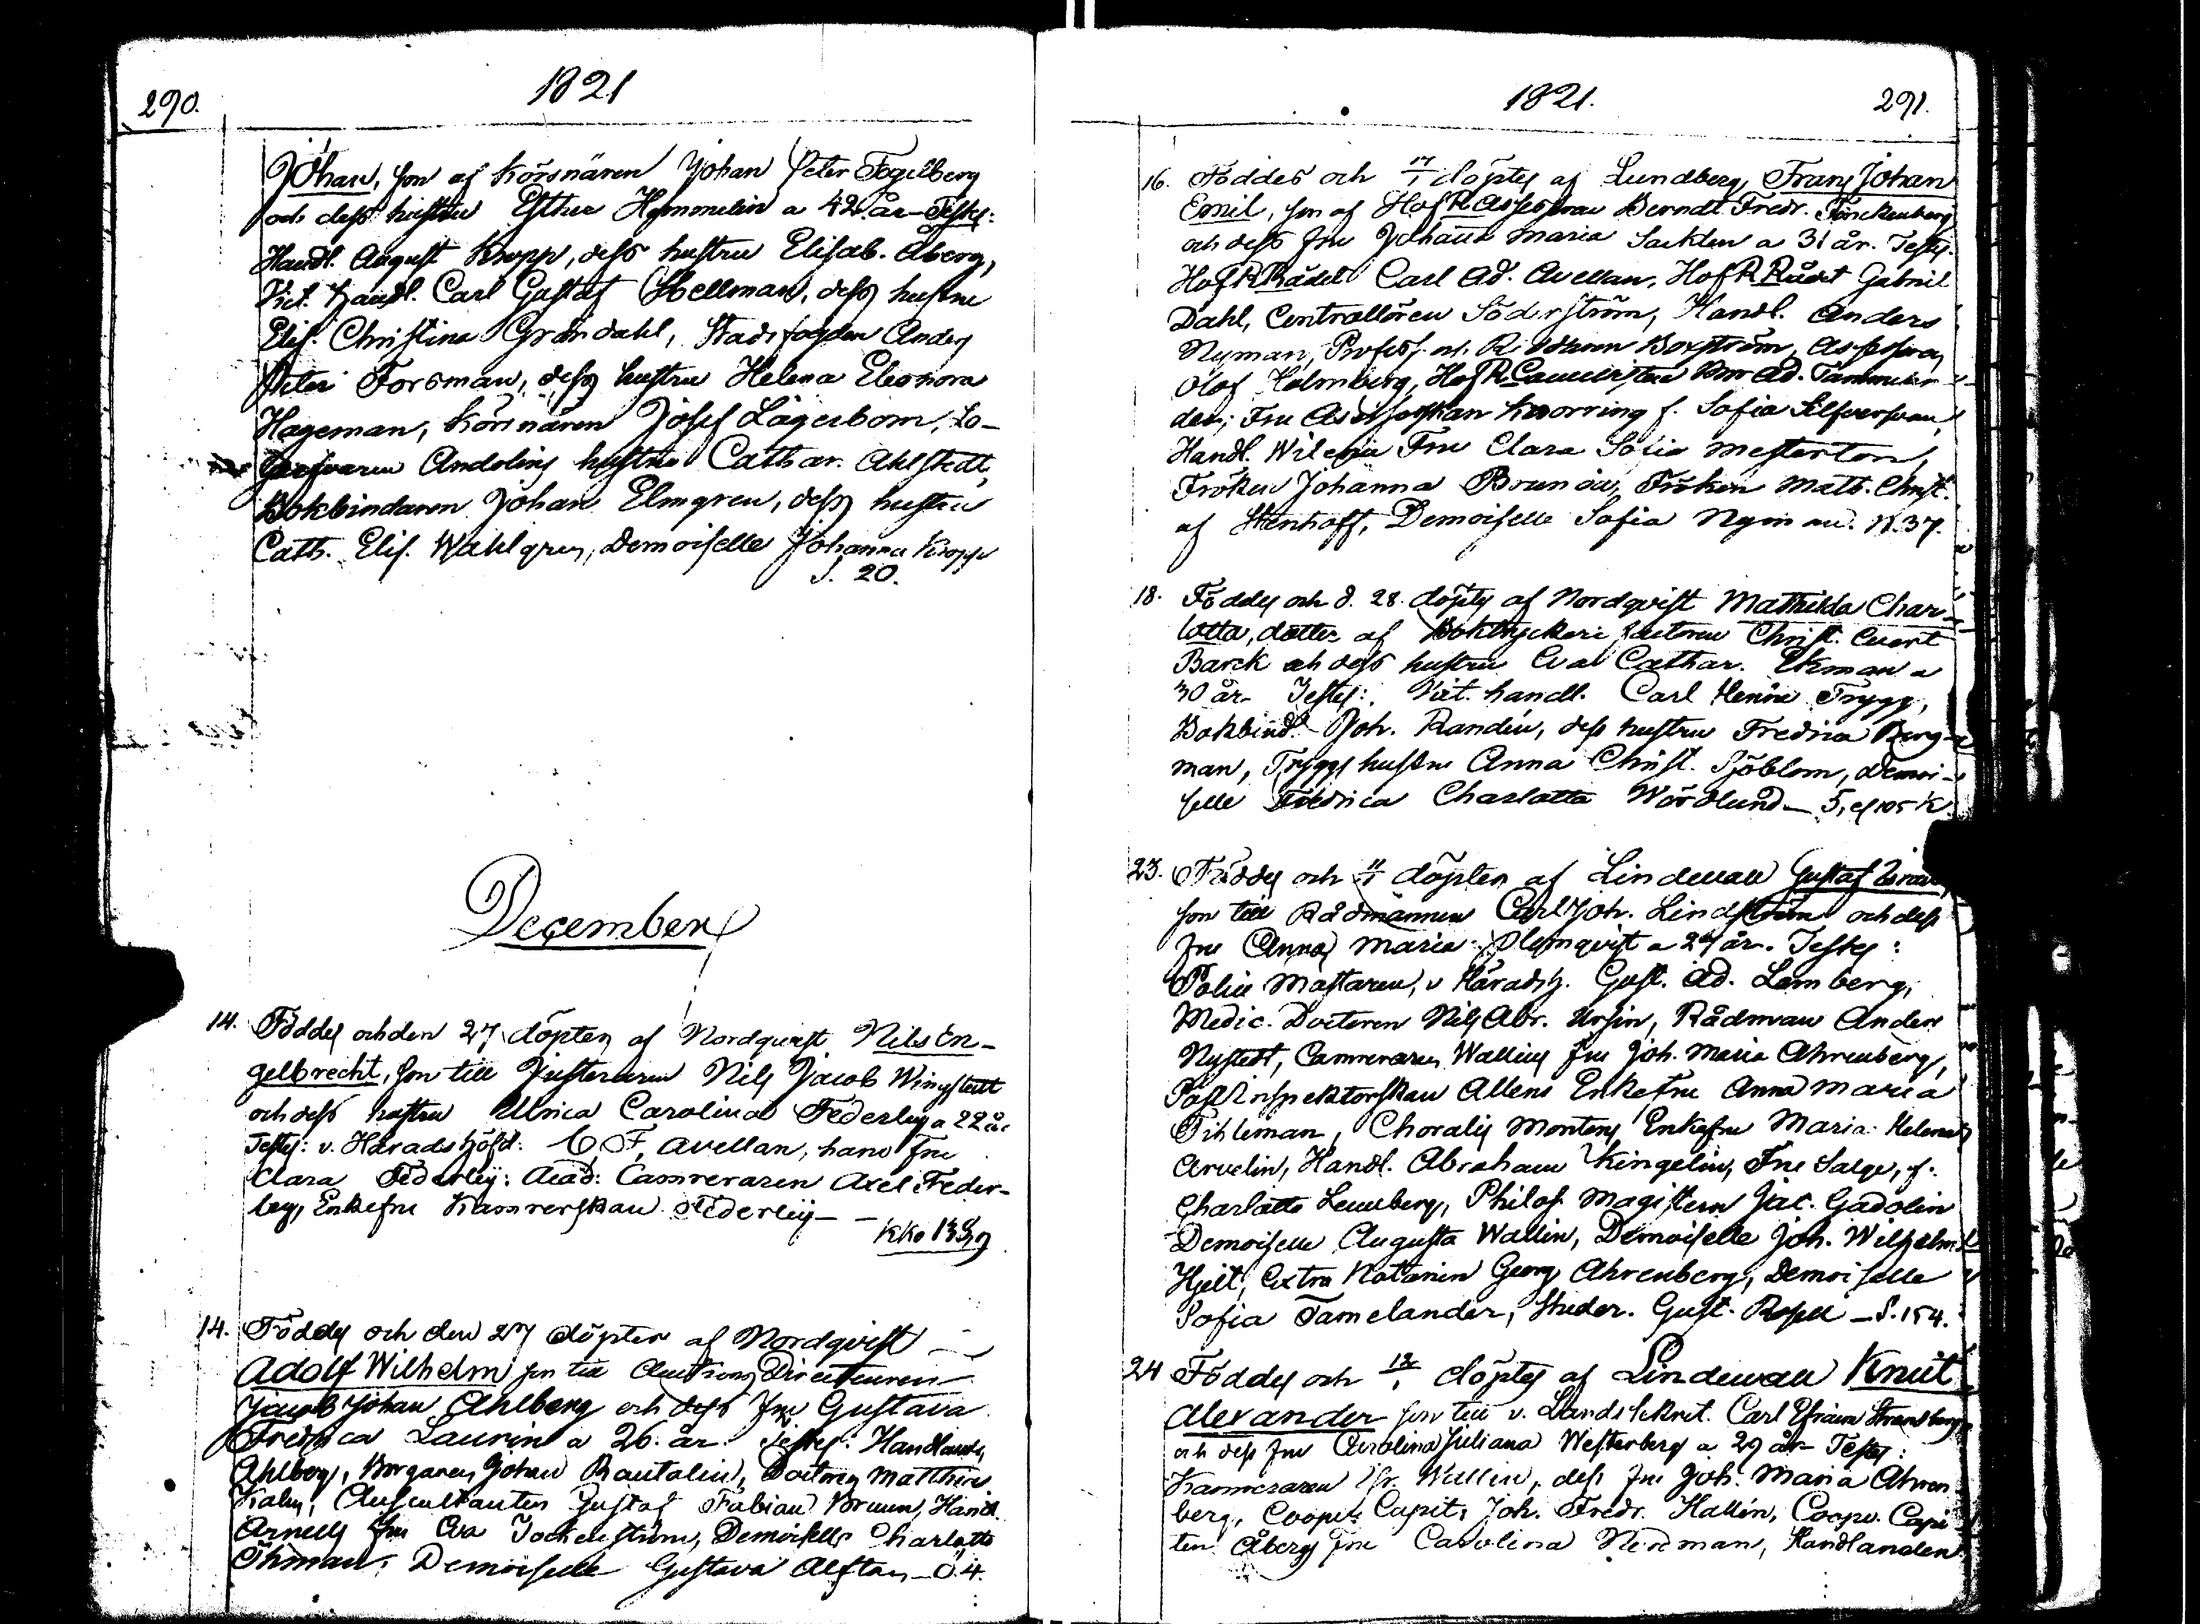 290.
1821
Johan, son af Körsnären Johan Peter Fogelberg
och dess hustru Esther Hemmelin a 42 år - Testes:
Handl. August Kropp, dess hustru Elisab. Åberg,
Vict. handl. Carl Gustaf Hellman, dess hustru
Elis. Christina Gröndahl, Stadsfogden Anders
Peter Forsman, dess hustru Helena Eleonora
Hageman, Körsnären Josef Lägerbom, Lo-
Andelins hustru Cathar. Ahlstedt,
Bokbindaren Johan Elmgren, dess hustru
Cath. Elis. Wahlgren, Demoiselle Johanna Kropp
S. 20.
December
14. Föddes och den 27 döptes af Nordqvist Nils En-
gelbrecht, son till Justeraren Nils Jacob Wingstedt
och dess hustru Ulrica Carolina Federley a 22 år
Testes: v. Häradshöfd: C. F. Avellan, hans Fru
Clara Federley: Acad: Camreraren Axel Feder-
ley, Enkefru Kamrerskan Federley -
KKo
14. Föddes och den 27 döptes af Nordqvist
Adolf Wilhelm son till Auctions Directeuren
Jacob Johan Ahlberg och dess Fru Gustava
Fredrica Laurin a 26 år. Testes: Handlande
Ahlberg, Borgaren Johan Rautalin, Doctorn Matthias
Kalm, Auscultanten Gustaf Fabian Bruun, Handl.
Arnells Fru Eva Jockenström, Demoiselle Charlotta
Öhman, Demoiselle Gustava Alftan - Ö. 4.
1821.
291.
16. Föddes och 17/1 döptes af Lundberg, Frans Johan
Emil, son af HofR Assessoren Berndt Fredr.
och dess fru Johanna Maria Sacklen a 31 år. Testes.
HofRRådet Carl Ad. Avellan, HofRRådet Gabriel
Dahl, Controllören Söderström, Handl. Anders
Nyman, Profess. Johan Boxström, Assessoren
Olof Holmberg, HofR Ad. Tammelan-
der; Fru Assessorskan Knorring f. Sofia Silfversvan,
Handl. Fru Clara Sofia Mesterton,
Fröken Johanna Brunow, Fröken Math. Christ.
af Stenhoff, Demoiselle Sofia Nyman. N. 37.
18. Föddes och d. 28. döptes af Nordqvist Mathilda Char-
lotta, dotter af Boktryckeri factoren Christ. Evert
Barck och dess hustru Eva Cathar. Ekman a
30 år Testes: Vict. handl. Carl Henric Trygg,
Bokbind. Joh. Randin, dess hustru Fredrica Berg-
man, Tryggs hustru Anna Christ. Sjöblom, Demoi-
selle Fredrica Charlotta Nordlund -
23. Föddes och 11/1 döptes af Lindewall Gustaf
son till Rådmannen Carl Joh. Lindström och dess
fru Anna Maria Blomqvist a 27 år. Testes:
Polis Mästaren, v Häradsh. Gust. Ad. Lemberg,
Medic. Doctoren Nils Abr. Ursin, Rådman Anders
Nystedt, Camreraren Wallins fru Joh. Maria Ahrenberg,
Post Inspektorskan Alléns Enkefru Anna Maria
Tihleman, Choralis Montens Enkefru Maria Helena
Arvelin, Handl. Abraham Kingelin, Fru Salge, f.
Charlotta Lemberg, Philos. Magistern Jac. Gadolin
Demoiselle Augusta Wallin, Demoiselle Joh. Wilhelm.
Hjelt, Extra Notarien Georg Ahrenberg, Demoiselle
Sofia Tamelander, Studer. Gust. Rosell - S. 154.
24 Föddes och 12/1 döptes af Lindewall Knut
Alexander son till v. Landssekret. Carl Efraim Strandberg
och dess fru Carolina Juliana Westerberg a 29 år Testes:
Kamreraren Wallin, dess fru Joh. Maria Ahren
berg, Coopv. Capit. Joh. Fredr. Hallén, Coopv. Capi
ten Åbergs fru Carolina Nerdman, Handlanden